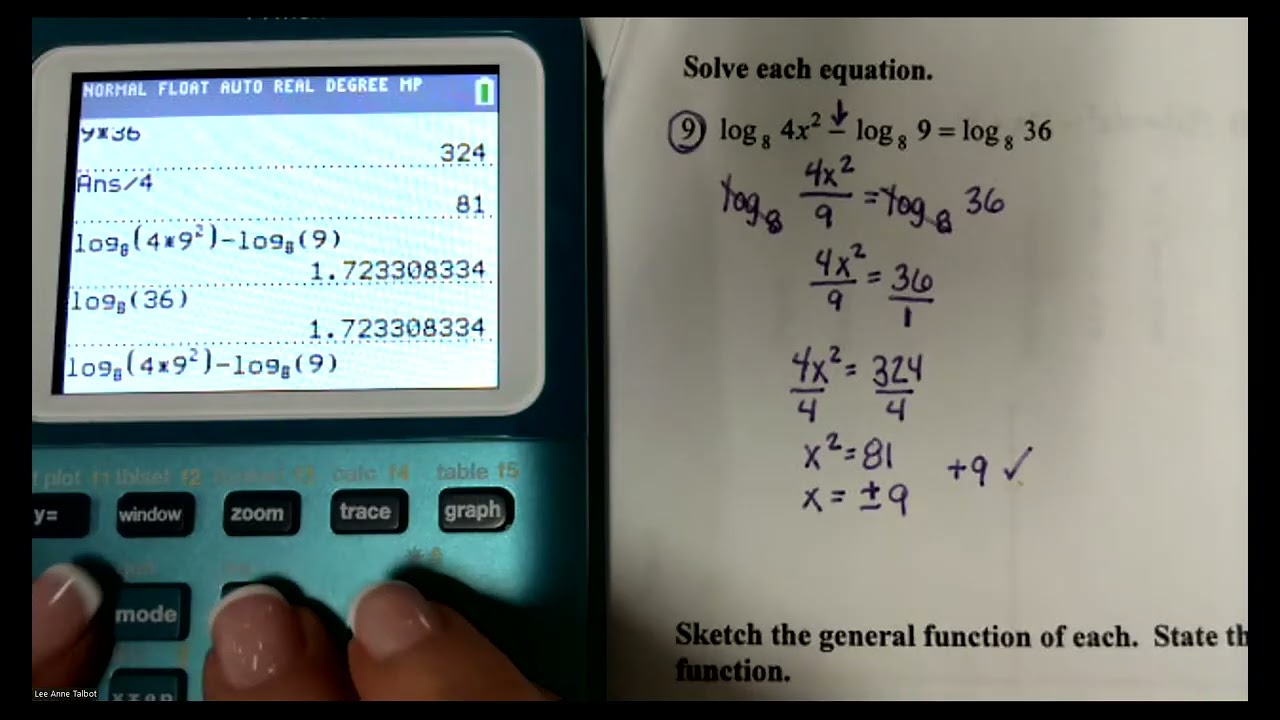 NORMAL FLOAT AUTO REAL DEGREE MP
9*36
324
Ans/4
81
log₈(4*9²)-log₈(9)
1.723308334
log₈(36)
1.723308334
log₈(4*9²)-log₈(9)
table f5
calc f4
y=
window
zoom
trace
graph
mode
Lee Anne Talbot
Solve each equation.
9) log₈ 4x² – log₈ 9 = log₈ 36
log₈ 4x²/9 = log₈ 36
4x²/9 = 36/1
4x²/4 = 324/4
x² = 81
x = ±9
+9 ✓
Sketch the general function of each. State th
function.